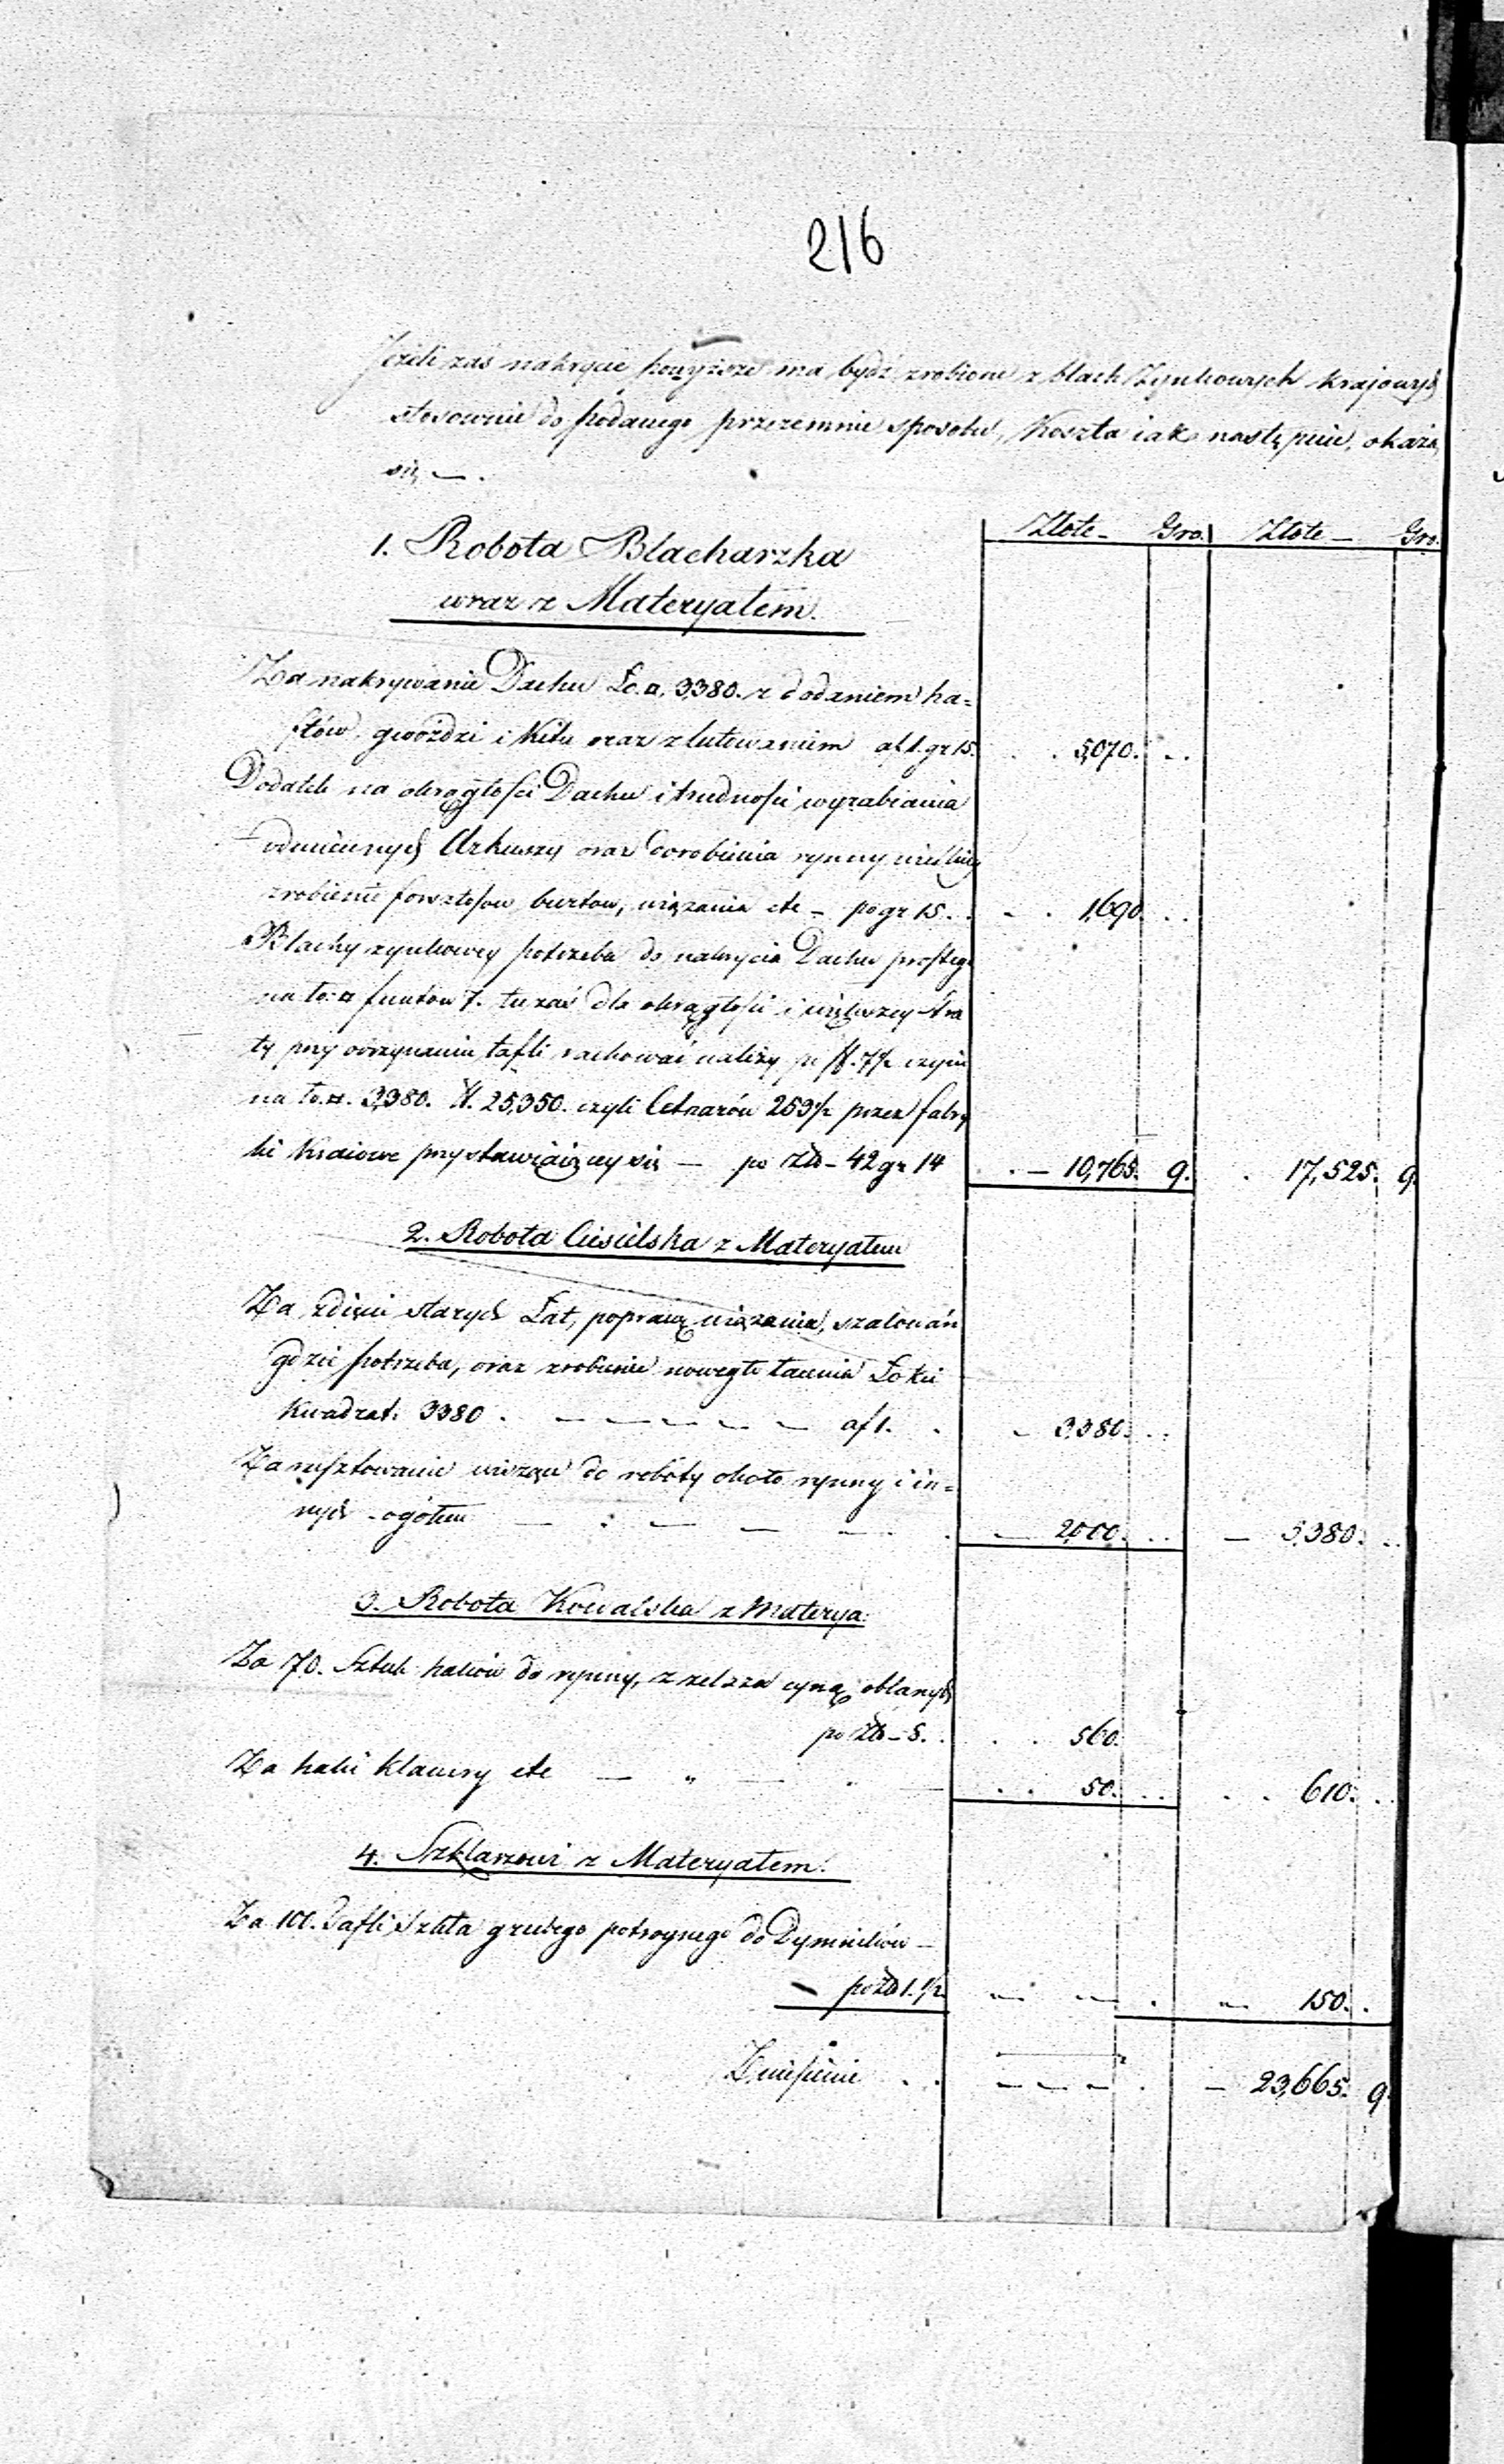 216
Jeżeli zaś nakrycie powyższe ma bydź zrobione z blach Zynkowych krajowych
stosownie do podanego przezemnie sposobu, Koszta iak następnie, okażą
się — .
Złote — Gro. Złote — Gro.
1. Robota Blacharzka
wraz z Materyałem.
Za nakrywanie Dachu Ło. □. 3380. z dodaniem ha=
ftów gwoździ i Kitu oraz zlutowaniem af 1. gr 15. . . 5,070. . .
Dodatek na okrągłości Dachu i trudności wyrabiania
Arkuszy oraz dorobienia rynny
zrobienie burtow, wiązania etc — po gr 15. . — . 1,690. . .
Blachy zynkowey potrzeba do nakrycia Dachu prostego
na ło: □ funtow 7. tu zaś dla okrągłości i większey stra
ty przy obrzynaniu tafli rachować należy po ff. 7½ czyni
na ło. □. 3,380. ff. 25,350. czyli Cetnarów 253½ przez fabry
ki Kraiowe przystawiaiących się — po Złb — 42 gr 14 . . — 10,765. 9. . 17,525. 9.
2. Robota Ciesielska z Materyałem
Za zdięcie starych Łat, poprawę wiązania, szalowań
gdzie potrzeba, oraz zrobienie nowego łacenia Łokci
Kwadrat: 3380 . — — — — — af 1. . — 3,380. . .
Za rusztowanie wiszące do roboty około rynny i in=
nych - ogółem — : — — — . — 2,000. . . — 5,380. . .
3. Robota Kowalska z Materya:
Za 70. Sztuk haków do rynny, z zelaza cyną oblanych
po Złb — 8. . . . 560.
Za haki klamry etc — " — " — . . 50. . . . . 610. . .
4. Szklarzowi z Materyałem.
Za 100. Tafli Szkła grubego potroynego do Dymników —
— po Złb 1. ½ — — . — 150. .
Zniesienie . . — — — . — 23,665. 9.